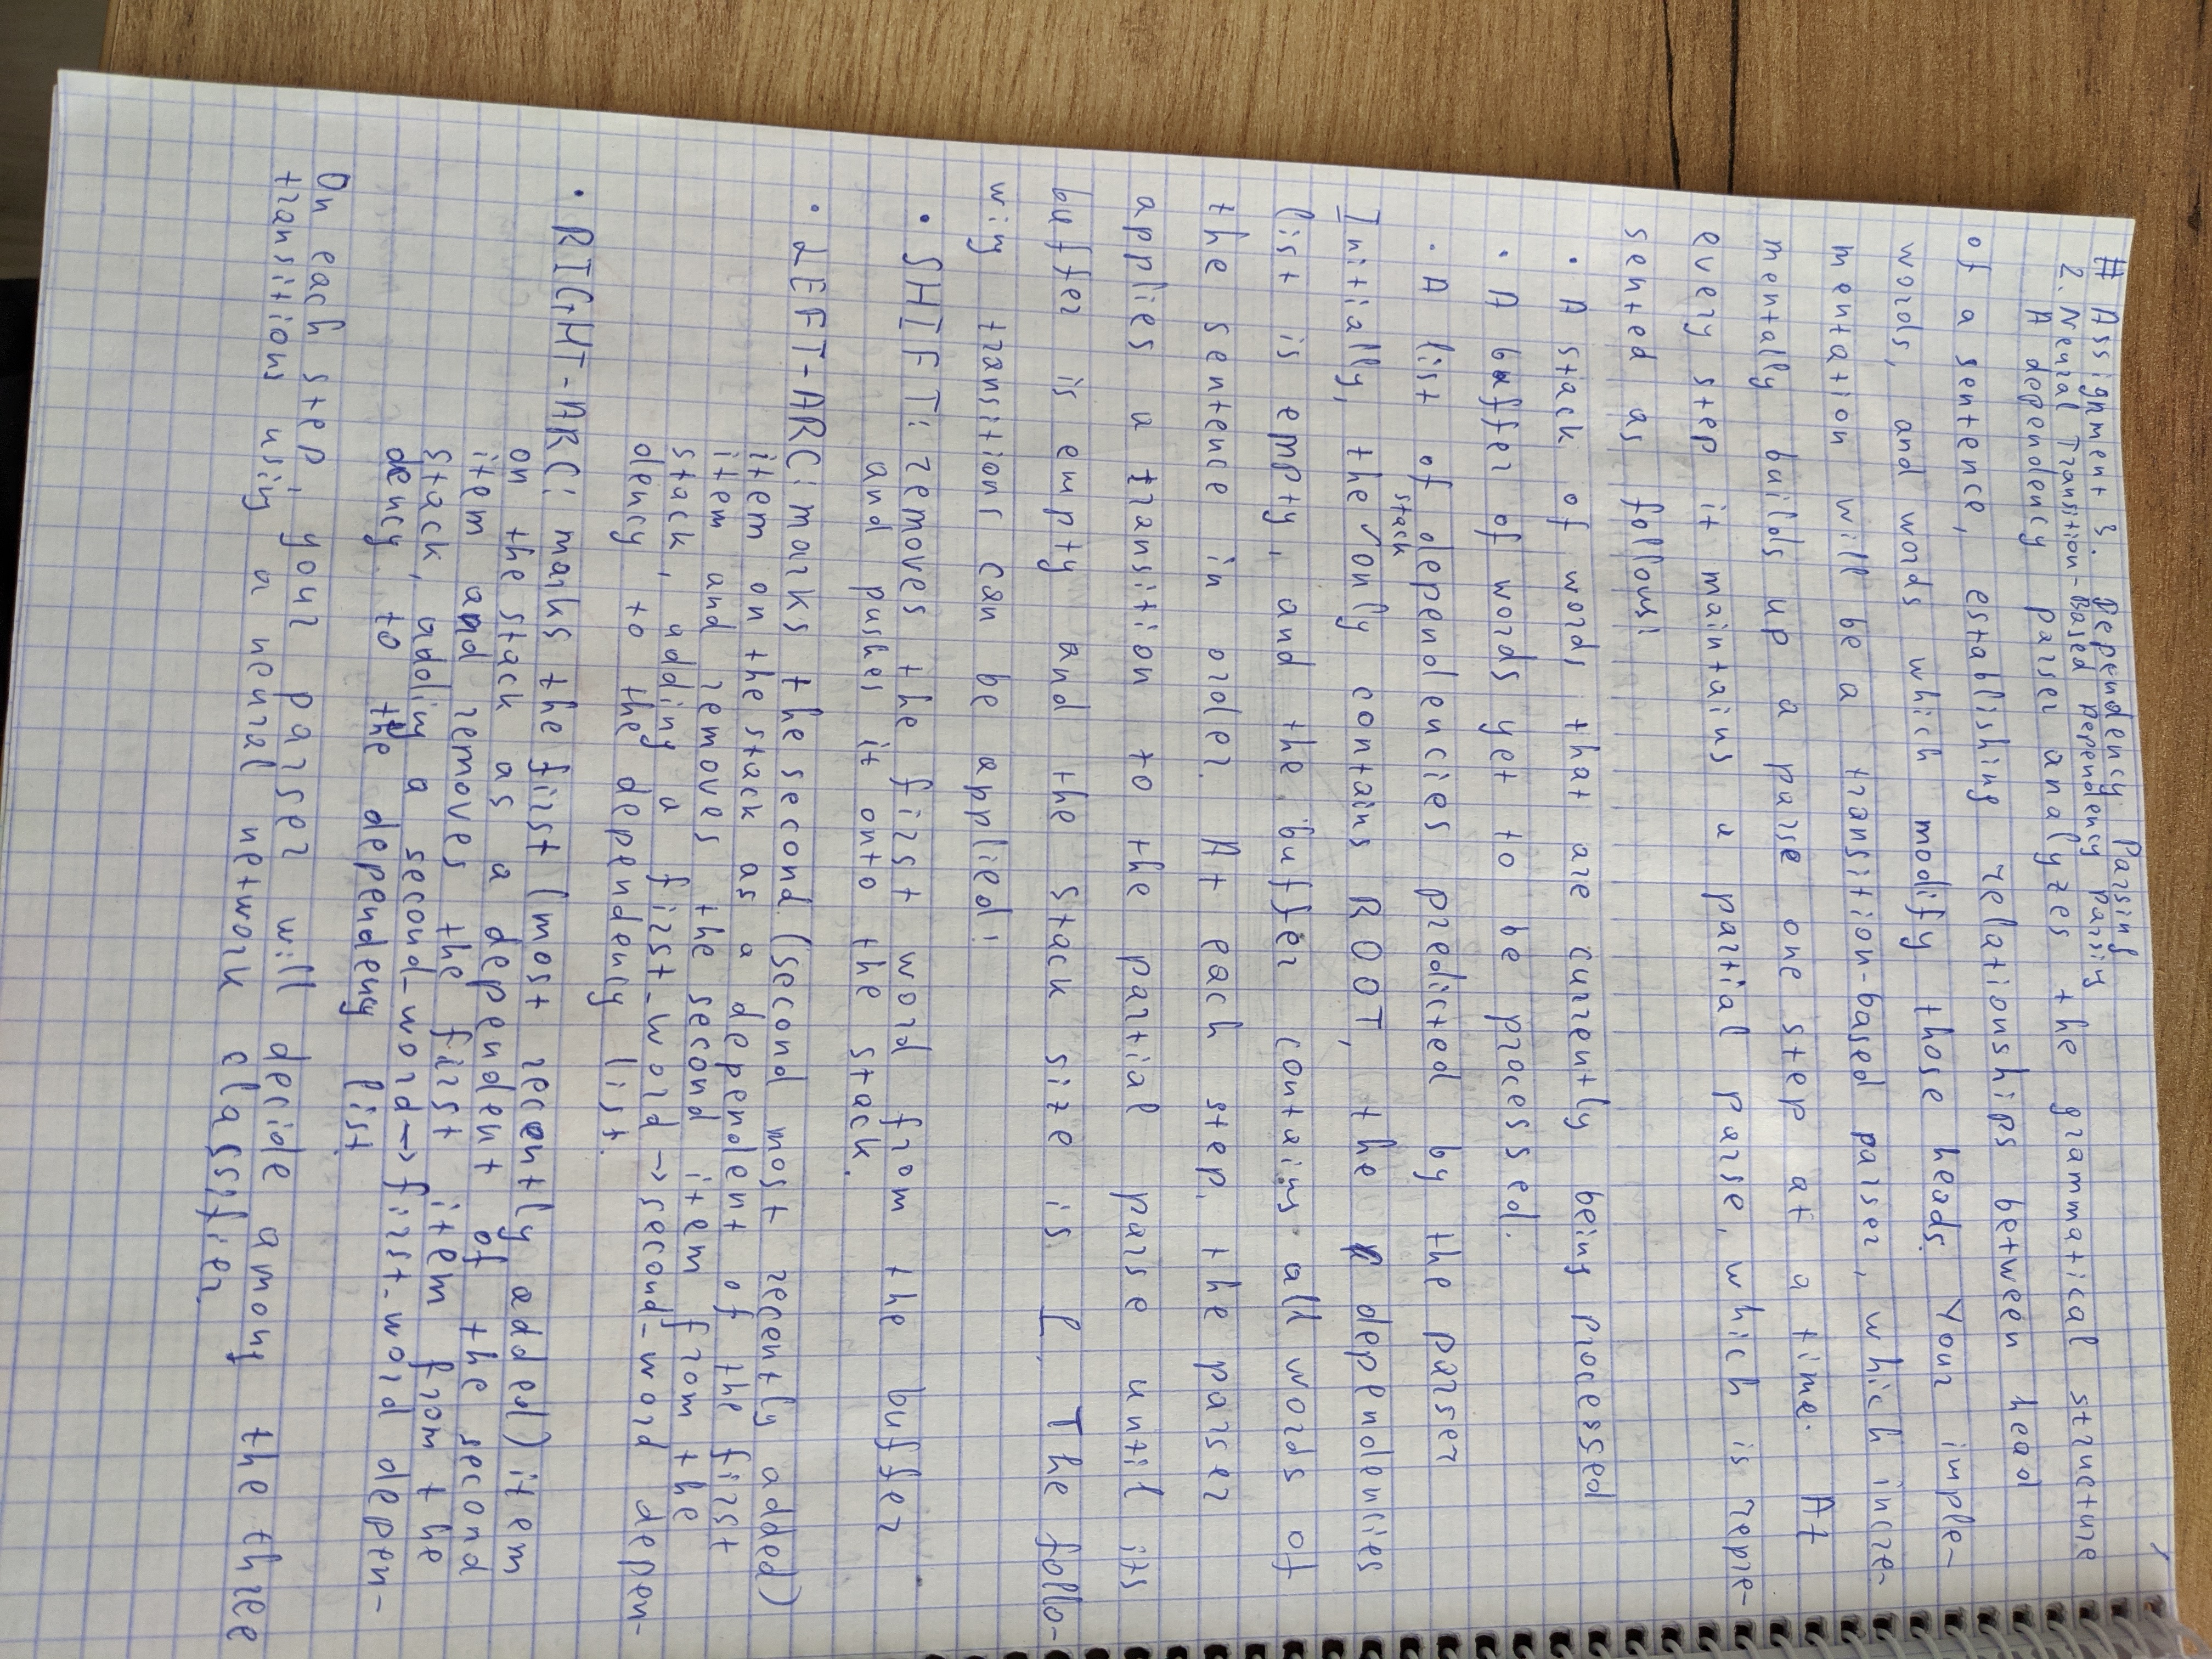 # Assignment 3. Dependency Parsing
2. Neural Transition-Based Dependency Parsing
A dependency parser analyzes the grammatical structure
of a sentence, establishing relationships between head
words, and words which modify those heads. Your imple-
mentation will be a transition-based parser, which incre-
mentally builds up a parse one step at a time. At
every step it maintains a partial parse, which is repre-
sented as follows:
· A stack of words that are currently being processed
· A buffer of words yet to be processed.
· A list of dependencies predicted by the parser
Initially, the stack only contains ROOT, the dependencies
list is empty, and the buffer contains all words of
the sentence in order. At each step, the parser
applies a transition to the partial parse until its
buffer is empty and the stack size is 1. The follo-
wing transitions can be applied:
· SHIFT: removes the first word from the buffer
and pushes it onto the stack.
· LEFT-ARC: marks the second (second most recently added)
item on the stack as a dependent of the first
item and removes the second item from the
stack, adding a first-word → second-word depen-
dency to the dependency list.
· RIGHT-ARC: marks the first (most recently added) item
on the stack as a dependent of the second
item and removes the first item from the
stack, adding a second-word → first-word depen-
dency to the dependency list.
On each step, your parser will decide among the three
transitions using a neural network classifier.